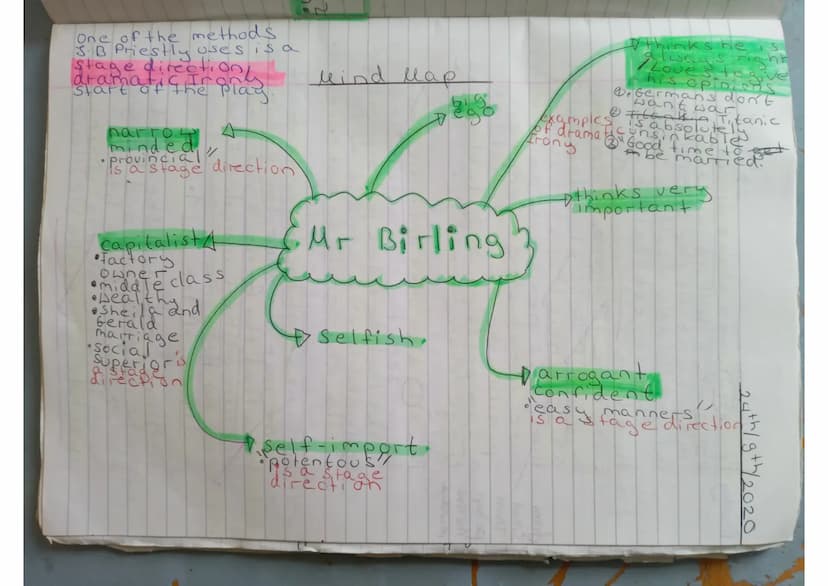 One of the methods
J.B Priestly uses is a
stage direction,
dramatic Irony
start of the play.
Mind Map
big
ego
thinks he is
always right
/Loves to give
his opinions
①. Germans don't
want war
② Titanic
is absolutely
unsinkable
③ Good time to get
be married.
examples
of dramatic
irony
narrow
minded
• provincial"
is a stage direction
thinks very
important
Mr Birling
capitalist
• factory
owner
• middle class
• wealthy
• sheila and
Gerald
marriage
• social
superior is
a stage
direction
selfish.
arrogant
confident
• "easy manners"
is a stage direction
self-import
"potentous"
is a stage
direction
24th/9th/2020